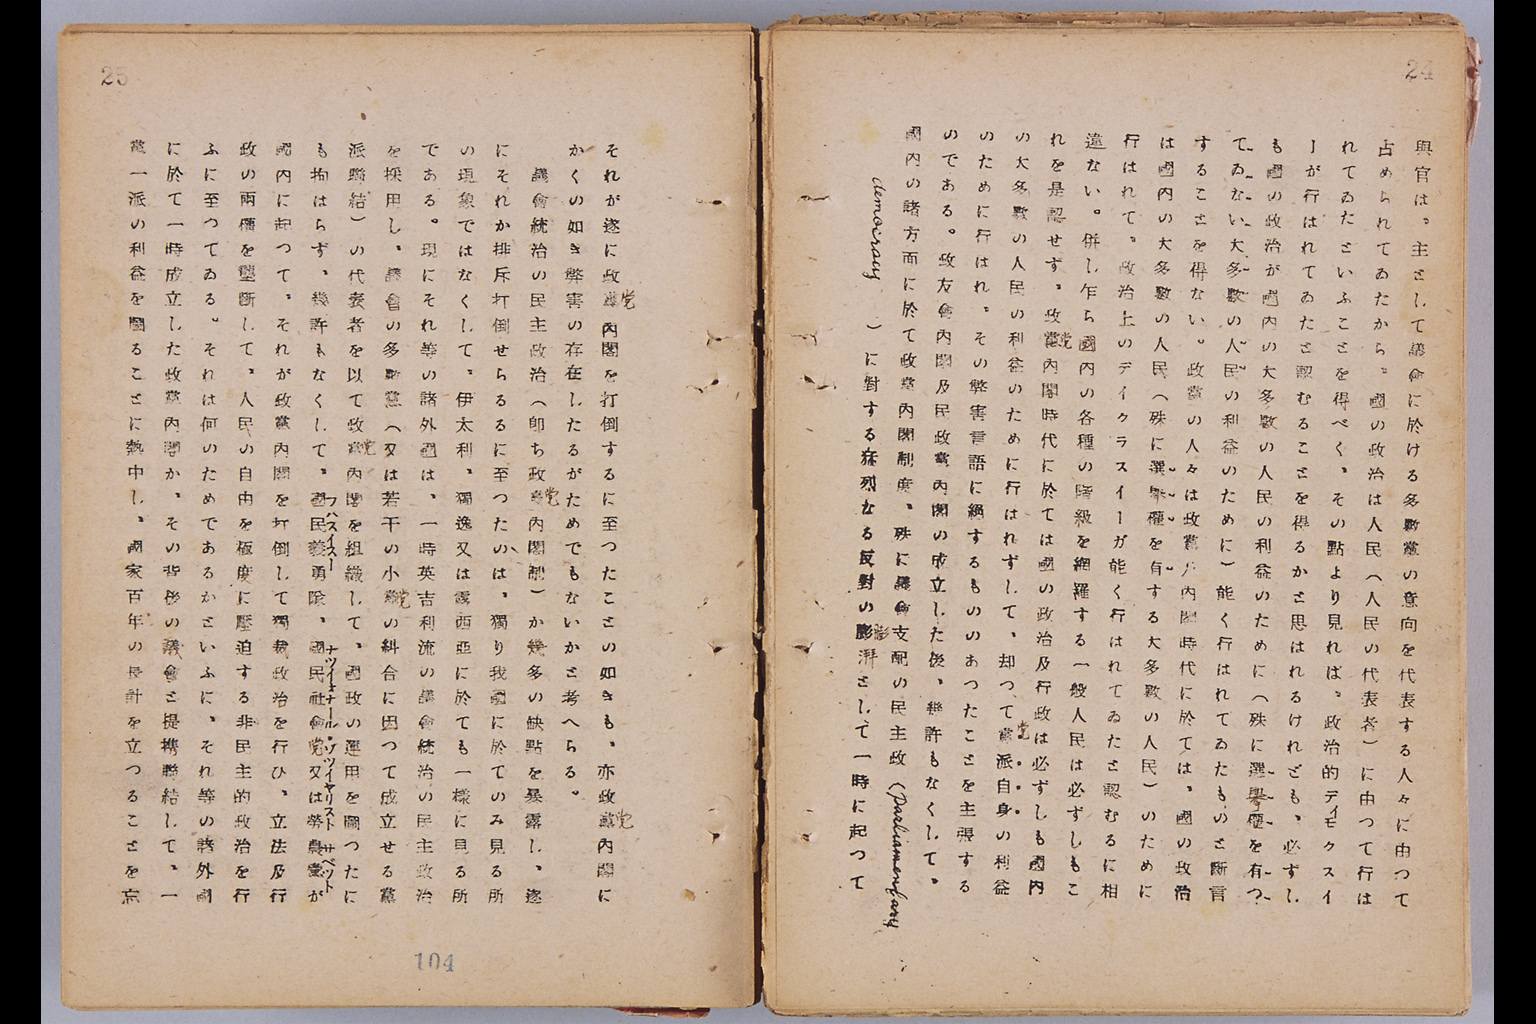 24
與官は。主として議會に於ける多數黨の意向を代表する人々に由つて
占められてゐたから。國の政治は人民(人民の代表者)に由つて行は
れてゐたといふことを得べく。その點より見れば。政治的ディモクスイ
ーが行はれてゐたと認むることを得るかと思はれるけれども。必ずし
も國の政治が國内の大多數の人民の利益のために(殊に選擧權を有つ
てゐない大多數の人民の利益のために)能く行はれてゐたものと斷言
することを得ない。政黨の人々は政黨内閣時代に於ては。國の政治
は國内の大多數の人民(殊に選擧權を有する大多數の人民)のために
行はれて。政治上のデイクラスイーガ能く行はれてゐたと認むるに相
違ない。併し乍ら國内の各種の階級を網羅する一般人民は必ずしもこ
れを是認せず。政党内閣時代に於ては國の政治及行政は必ずしも國内
の大多數の人民の利益のために行はれずして。却つて党派自身の利益
のために行はれ。その弊害言語に絶するもののあつたことを主張する
のである。政友會内閣及民政黨内閣の成立した後。幾許もなくして。
國内の諸方面に於て政黨内閣制度。殊に議會支配の民主政(parliamentary
democracy)に對する猛烈なる反對の膨湃として一時に起つて
25
それが遂に政党内閣を打倒するに至つたことの如きも。亦政党内閣に
かくの如き弊害の存在したるがためでもないかと考へらる。
議會統治の民主政治(卽ち政党内閣制)か幾多の缺點を暴露し。遂
にそれか排斥打倒せらるるに至つたのは。獨り我國に於てのみ見る所
の現象ではなくして。伊太利。獨逸又は露西亞に於ても一樣に見る所
である。現にそれ等の諸外國は。一時英吉利流の議會統治の民主政治
を採用し。議會の多數黨(又は若干の小党の糾合に因つて成立せる黨
派聯結)の代表者を以て政党内閣を組織して。國政の運用を圖つたに
も拘はらず。幾許もなくして。國民義勇隊。國民社會党又は勞農黨が
フハスイスー ナツイオナール・ソツイヤリスト サベット
國内に起つて。それが政黨内閣を打倒して獨裁政治を行ひ。立法及行
政の兩權を壟斷して。人民の自由を極度に壓迫する非民主的政治を行
ふに至つてゐる。それは何のためであるかといふに。それ等の諸外國
に於て一時成立した政黨内閣か。その背後の議會と提携聯結して。一
黨一派の利益を圖ることに熱中し。國家百年の長計を立つることを忘
104